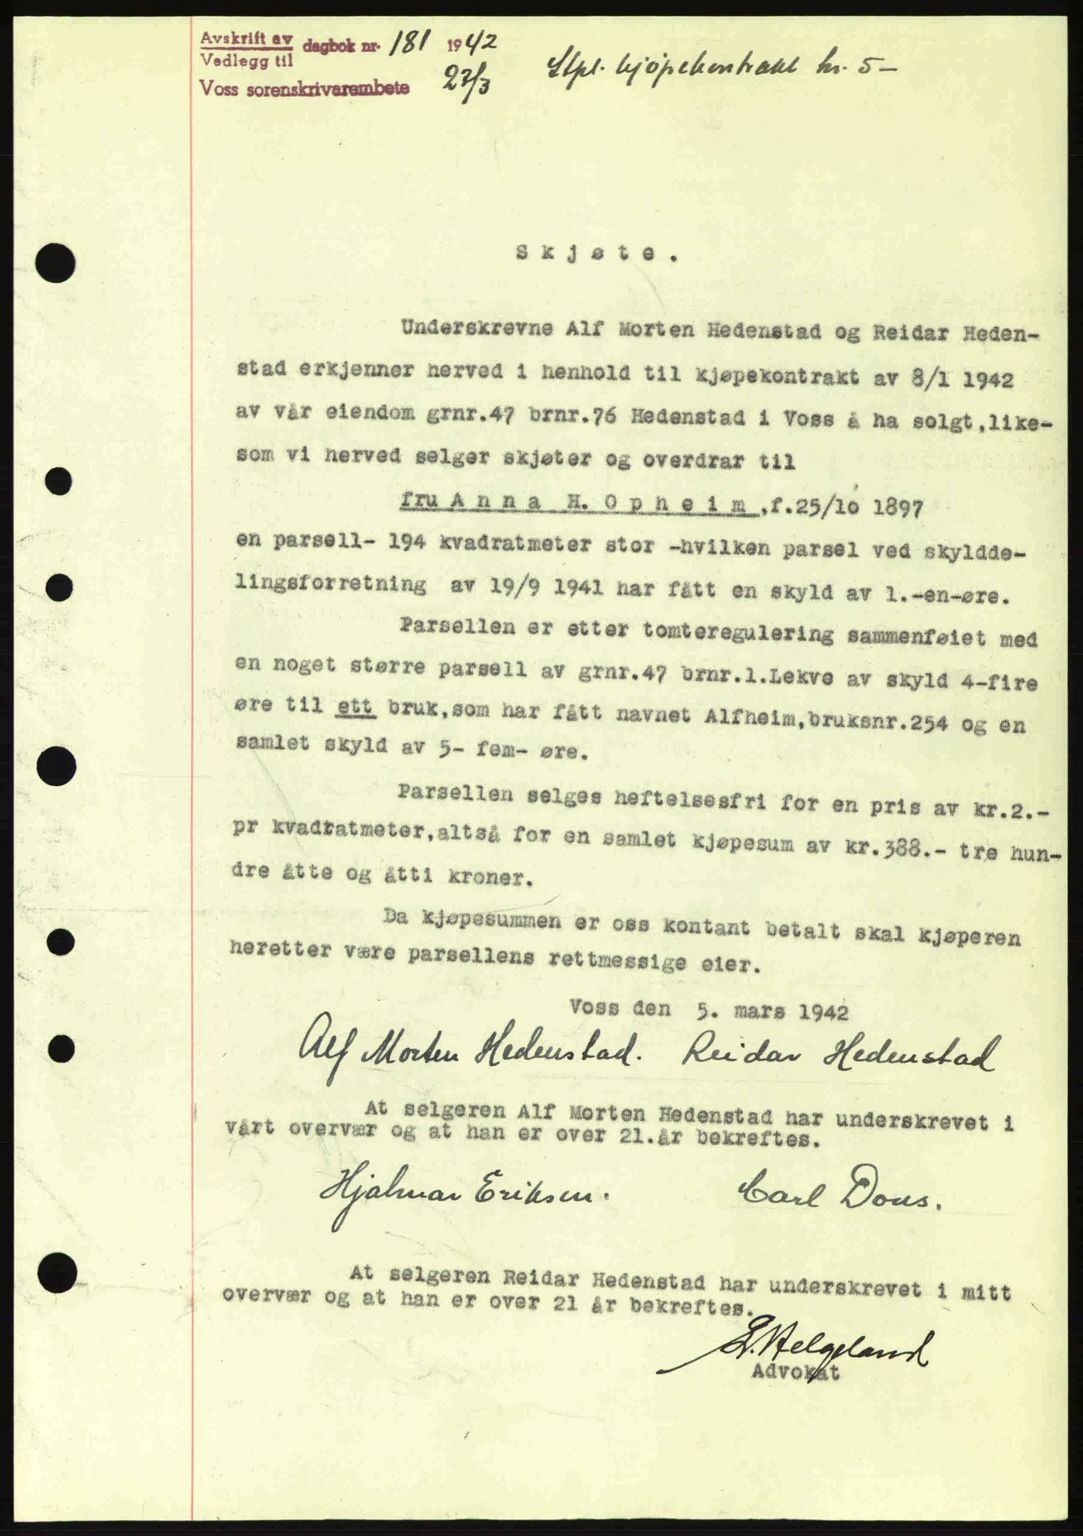 Avskrift av
Vedlegg til
dagbok nr. 181 1942
Voss sorenskrivarembete 23/3
Stpl. kjøpekontrakt kr. 5 -
Skjøte.
Underskrevne Alf Morten Hedenstad og Reidar Heden-
stad erkjenner herved i henhold til kjøpekontrakt av 8/1 1942
av vår eiendom grnr.47 brnr.76 Hedenstad i Voss å ha solgt,like-
som vi herved selger skjøter og overdrar til
fru Anna H. Opheim,f.25/10 1897
en parsell- 194 kvadratmeter stor -hvilken parsel ved skyldde-
lingsforretning av 19/9 1941 har fått en skyld av 1.-en-øre.
Parsellen er etter tomteregulering sammenføiet med
en noget større parsell av grnr.47 brnr.1.Lekve av skyld 4-fire
øre til ett bruk,som har fått navnet Alfheim,bruksnr.254 og en
samlet skyld av 5- fem- øre.
Parsellen selges heftelsesfri for en pris av kr.2.-
pr kvadratmeter,altså for en samlet kjøpesum av kr.388.- tre hun-
dre åtte og åtti kroner.
Da kjøpesummen er oss kontant betalt skal kjøperen
heretter være parsellens rettmessige eier.
Voss den 5. mars 1942
Alf Morten Hedenstad. Reidar Hedenstad
At selgeren Alf Morten Hedenstad har underskrevet i
vårt overvær og at han er over 21.år bekreftes.
Hjalmar Eriksen. Carl Dons.
At selgeren Reidar Hedenstad har underskrevet i mitt
overvær og at han er over 21 år bekreftes.
Helgeland
Advokat